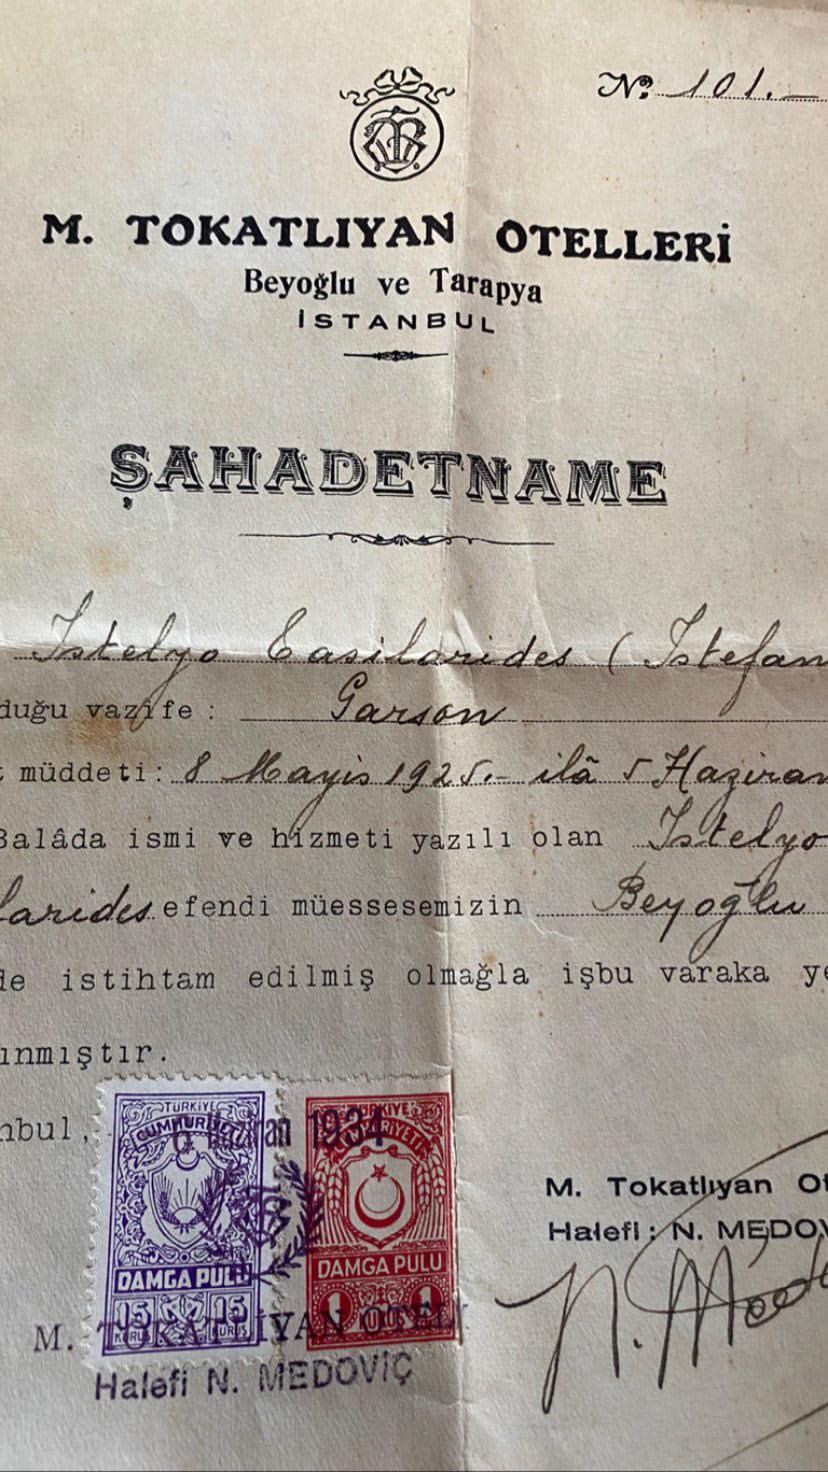 No. 101.-
M. TOKATLIYAN OTELLERİ
Beyoğlu ve Tarapya
İSTANBUL
ŞAHADETNAME
Istelyo Casilarides (Istefan
duğu vazife : Garson
müddeti: 8 Mayis 1925.- ilâ 5 Haziran
Balâda ismi ve hizmeti yazılı olan Istelyo
larides efendi müessesemizin Beyoğlu
de istihtam edilmiş olmağla işbu varaka ye
ınmıştır.
nbul,
6 Haziran 1934
TÜRKİYE
CUMHURİYETİ
DAMGA PULU
15 15
KURUŞ KURUŞ
TÜRKİYE
CUMHURİYETİ
DAMGA PULU
1 KURUŞ 1
M. TOKATLIYAN OTELİ
Halefi N. MEDOVİÇ
M. Tokatlıyan Ot
Halefi : N. MEDOV
N. Medo